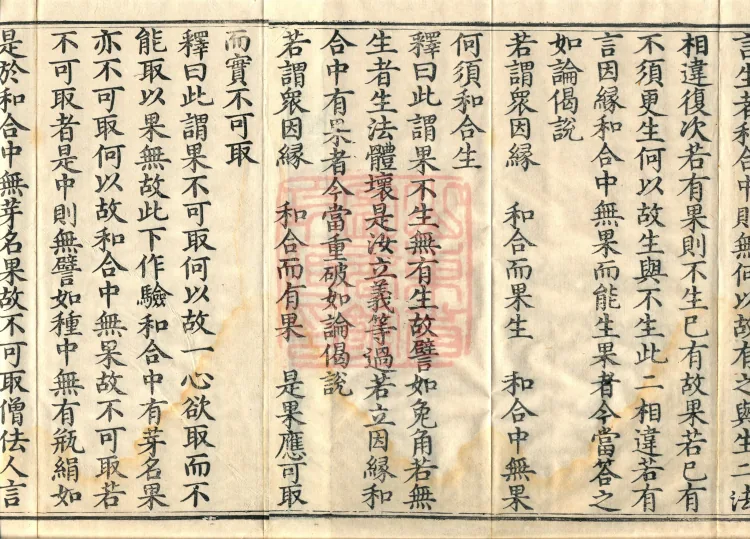 言生者和合中則無何以故有之與生二法
相違復次若有果則不生已有故果若已有
不須更生何以故生與不生此二相違若有
言因緣和合中無果而能生果者今當答之
如論偈說
若謂衆因緣　和合而果生　和合中無果
何須和合生
釋曰此謂果不生無有生故譬如兔角若無
生者生法體壞是汝立義等過若立因緣和
合中有果者今當重破如論偈說
若謂衆因緣　和合而有果　是果應可取
而實不可取
釋曰此謂果不可取何以故一心欲取而不
能取以果無故此下作驗和合中有芽名果
亦不可取何以故和合中無果故不可取若
不可取者是中則無譬如種中無有瓶絹如
是於和合中無芽名果故不可取僧佉人言